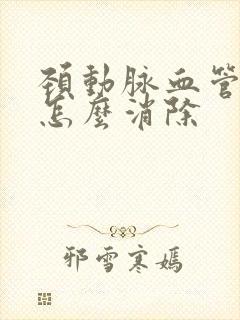 頚動脉血管
怎麼消除
邪雪寒嫣